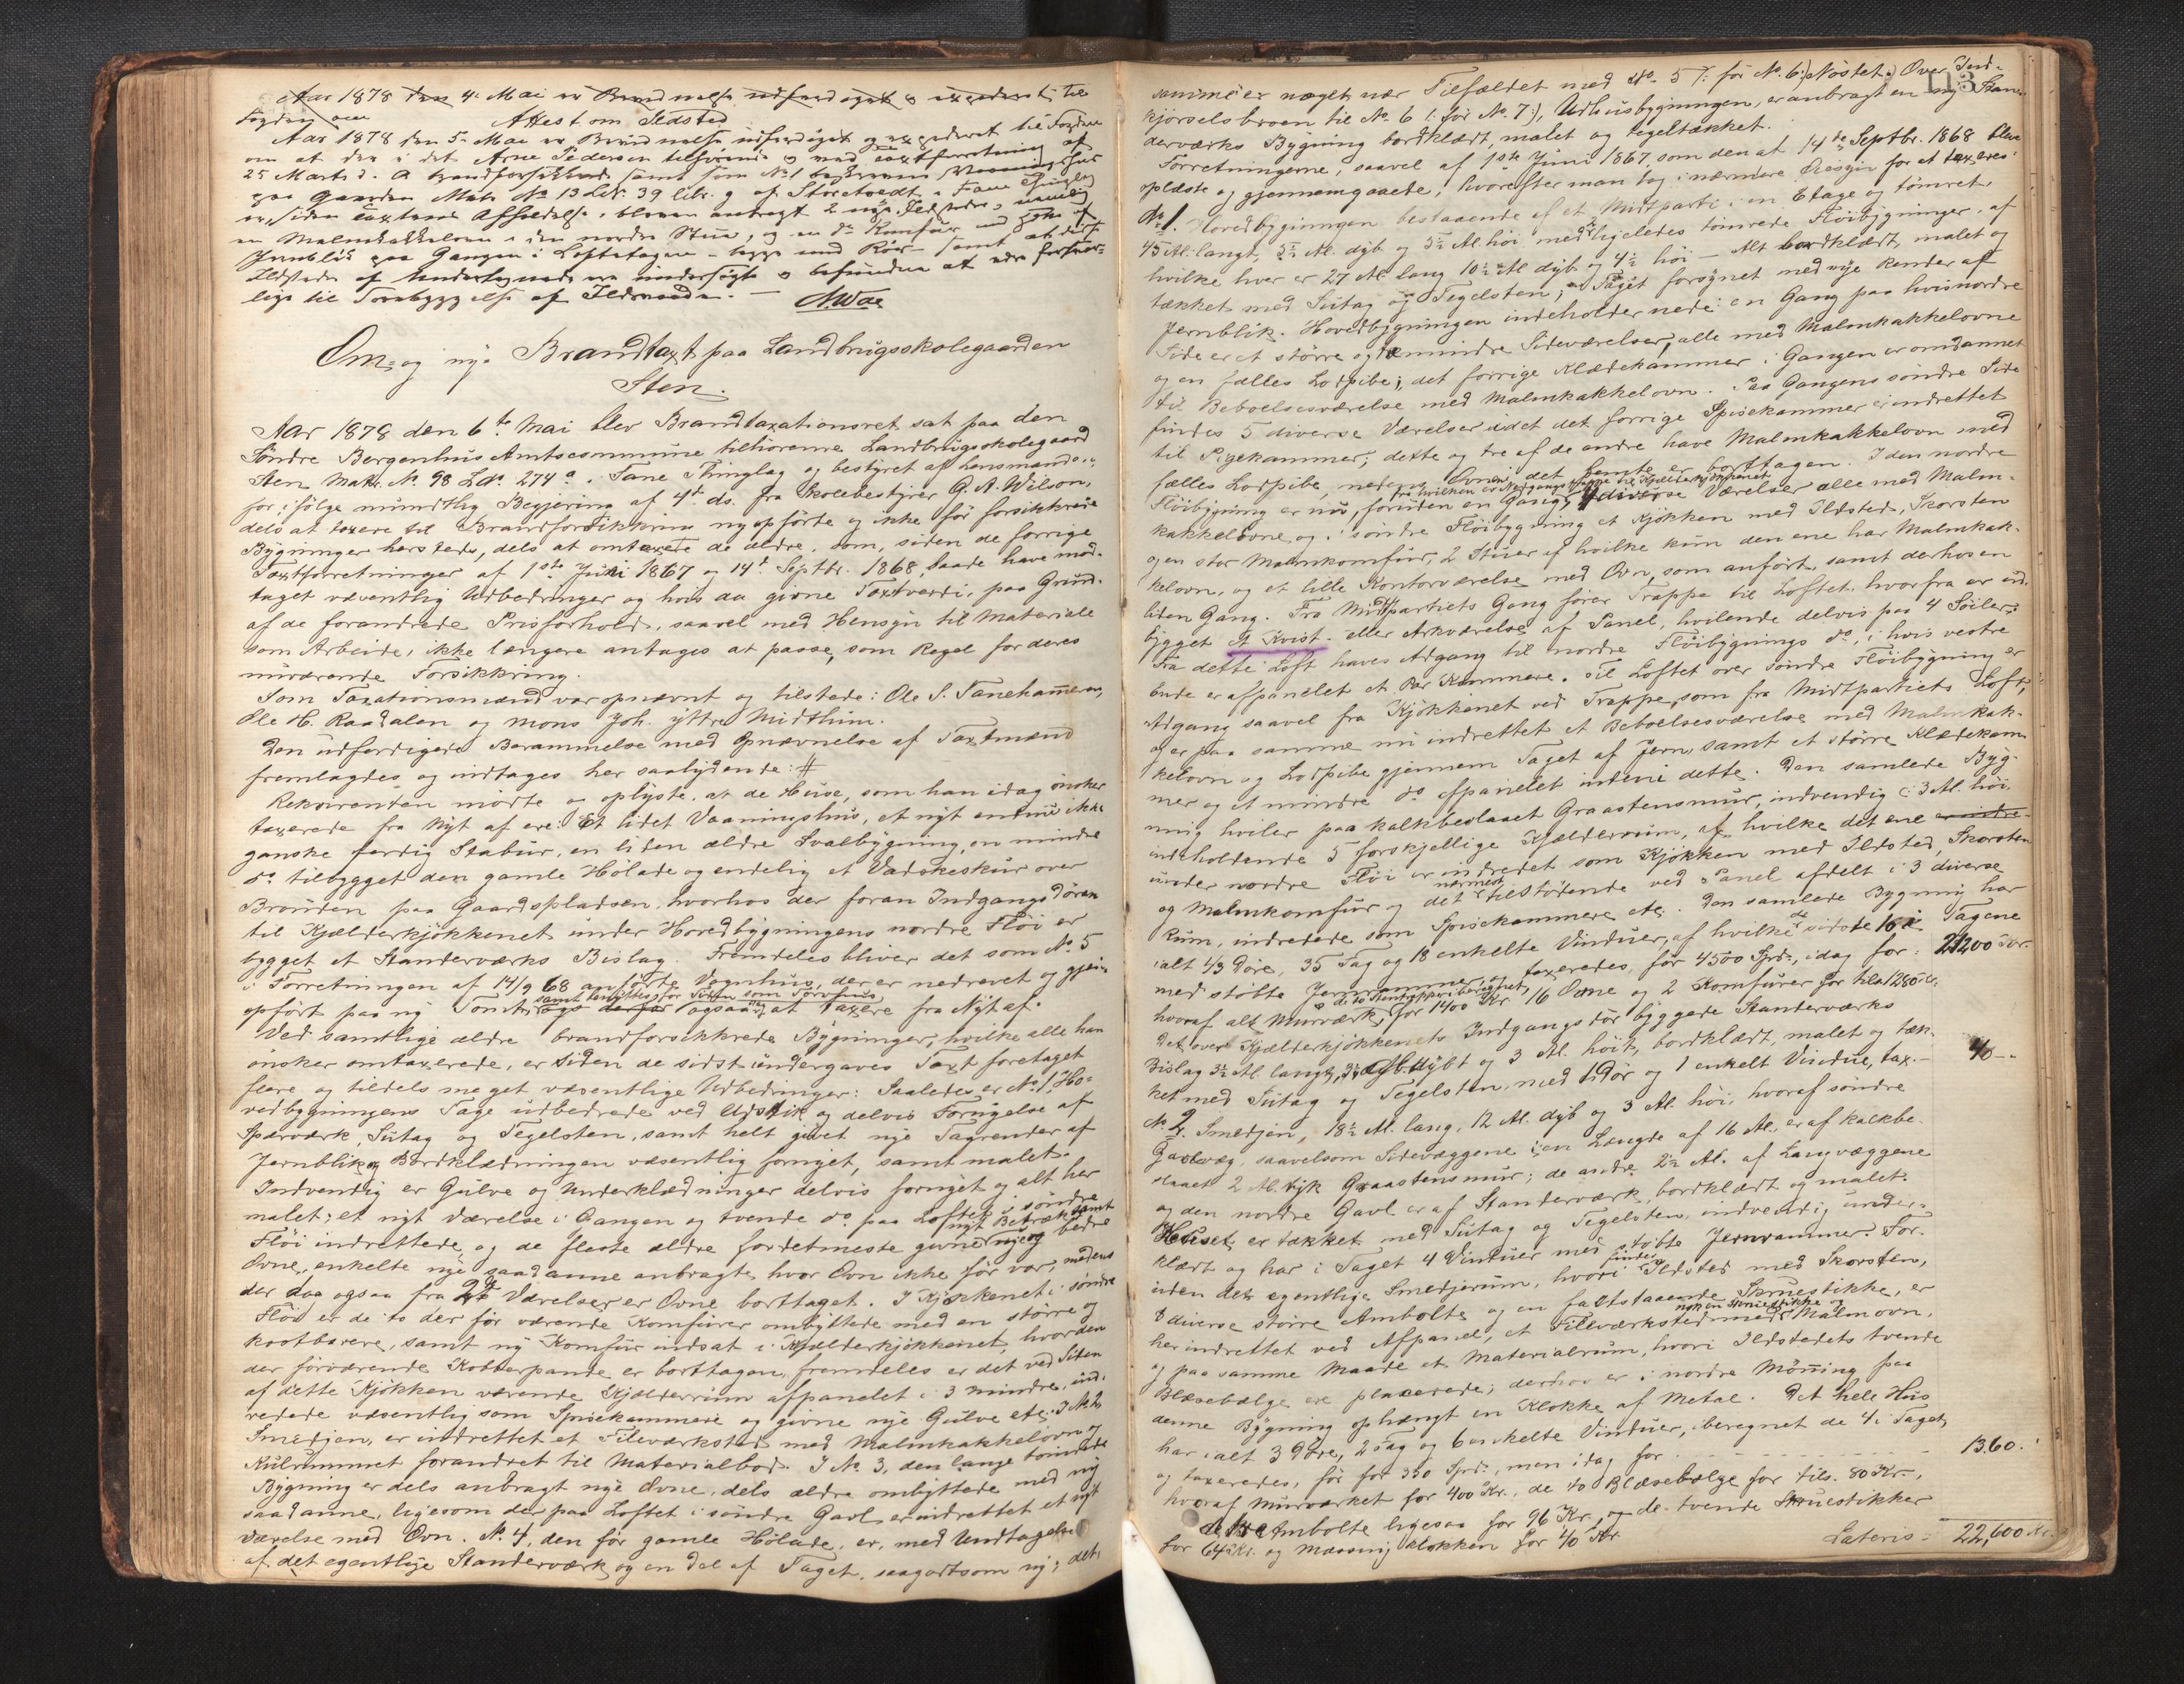 Aar 1878 den 4. Mai er Brand udfærdiget og expederet til
Fogden om
Attest om Ildsted
Aar 1878 den 5. Mai er udfærdiget og expederet til Fogden
om at der i det Arne Pedersen tilhørende og ved Taxtforretning af
25 Marts d. A. brandforsikkrede samt som No 1 beskrevne Vaaningshus
paa Gaarden Matr. No 13 Lb. 39 litr. g af Storetvedt i Fane Thinglag
er, siden Taxtens Afholdelse, bleven anbragt 2 nye Ildsteder, nemlig
en Malmkakkelovn i den nordre Stue, og en do Komfur
Jernblik paa Gangen i Loftetagen - begge med Rør - samt at disse
Ildsteder af Undertegnede ere undersøgte og befundne at være forsvar-
lige til Forebyggelse af Ildsvaade. —
Om- og nye Brandtaxt paa Landbrugsskolegaarden
Sten.
Aar 1878 den 6te Mai blev Brandtaxationsret sat paa den
Søndre Bergenhus Amtscommune tilhørende Landbrugsskolegaard
Sten Matr. No. 98 Ldo. 274 a i Fane Thinglag og bestyret af Lensmanden
for ifølge mundtlig Begjering af 4de ds. fra Skolebestyrer G. A. Wilson,
dels at taxere til Brandforsikkring nyopførte og ikke før forsikkrede
Bygninger hersteds, dels at omtaxere de ældre, som, siden de forrige
Taxtforretninger af 1ste Juni 1867 og 14de Septbr. 1868, baade have mod-
taget væsentlig Udbedringer og hvis da givne Taxtværdi, paa Grund
af de forandrede Prisforhold, saavel med Hensyn til Materiale
som Arbeide, ikke længere antages at passe, som Regel for deres
nuværende Forsikkring.
Som Taxationsmænd var opnævnt og tilstede: Ole S. Fanehammeren,
Ole H. Raadalen og Mons Joh. Yttre Midthun.
Den udfærdigede Berammelse med Opnævnelse af Taxtmænd
fremlagdes og indtages her saalydende: #
Rekvirenten mødte og oplyste, at de Huse, som han idag ønsker
taxerede fra Nyt af ere: Et lidet Vaaningshus, et nyt endnu ikke
ganske færdig Stabur, en liden ældre Svalbygning, en mindre
do tilbygget den gamle Hølade og endelig et Vadskeskur over
Brønden paa Gaardspladsen, hvorhos der foran Indgangsdøren
til Kjælderkjøkkenet under Hovedbygningens nordre Fløi er
bygget et Standerværks Bislag. Fremdeles bliver det som No. 5
i Forretningen af 14/9 68 anførte Vognhus, der er nedrevet og gjen-
opført paa ny Tomt, samt benyttes for Tiden som Tørvhus, ogsaa at taxere fra Nyt af.
Ved samtlige ældre brandforsikkrede Bygninger, hvilke alle han
ønsker omtaxerede, er siden de sidst undergaves Taxt foretaget
flere og tildels meget væsentlige Udbedringer: Saaledes er No. 1, Ho-
vedbygningens Tage udbedrede ved Udskik og delvis Fornyelse af
Sperværk, Sutag og Tegelsten, samt helt givet nye Tagrender af
Jernblik og Bordklædningen væsentlig fornyet, samt malet.
Indvendig er Gulve og Underklædninger delvis fornyet og alt her
malet; et nyt Værelse i Gangen og tvende do paa Loftet i søndre
Fløi indrettede, og de fleste ældre fordetmeste givne nyt Betræk samt nye og bedre
Ovne, enkelte nye saadanne anbragte, hvor Ovn ikke før var, medens
der dog ogsaa fra 2de Værelser er Ovne borttaget. I Kjøkkenet i søndre
Fløi er de to der før værende Komfurer ombyttede med en større og
kostbarere, samt ny Komfur indsat i Kjælderkjøkkenet, hvor den
der førværende Kotterpande er borttagen, fremdeles er det ved Siden
af dette Kjøkken værende Kjælderrum afpanelet i 3 mindre, ind-
redede væsentlig som Spisekammere og givne nye Gulve etc. I No 2
Smedjen, er indrettet et Fileværksted med Malmkakkelovn og
Kulrummet forandret til Materialbod. I No. 3, den lange tømrede
Bygning er dels anbragt nye Ovne, dels ældre ombyttede med ny
saadanne, ligesom der paa Loftet i søndre Gavl er indrettet et nyt
Værelse med Ovn. No. 4, den før gamle Hølade, er, med Undtagelse
af det egentlige Standerværk og en Del af Taget, saagodtsom ny; det
113
samme er noget nær Tilfældet med No. 5 /: før No. 6:/ Nøstet. Over Ind-
kjørselsbroen til No 6 /: før No. 7:/, Udhusbygningen, er anbragt en ny Stan-
derværks Bygning bordklædt, malet og tegeltækket.
Forretningerne, saavel af 1ste Juni 1867, som den af 14de Septbr. 1868 blev
oplæste og gjennemgaaede, hvorefter man tog i nærmere Øiesyn for at taxeres:
No. 1. Hovedbygningen bestaaende af et Midtparti i en Etage og tømret,
45 Al. langt, 5½ Al. dyb og 5½ Al. høi med 2 ligeledes tømrede Fløibygninger, af
hvilke hver er 27 Al lang 10½ Al dyb og 4½ høi — Alt bordklædt, malet og
tækket med Sutag og Tegelsten, og Taget forsynet med nye Render af
Jernblik. Hovedbygningen indeholder nede: en Gang paa hvis nordre
Side er et større og to mindre Sideværelser, alle med Malmkakkelovne
og en fælles Lodpibe; det forrige Klædekammer i Gangen er omdannet
til Beboelsesværelse med Malmkakkelovn. Paa Gangens søndre Side
findes 5 diverse Værelser idet det forrige Spisekammer er indrettet
til Pigekammer; dette og tre af de andre have Malmkakkelovn med
fælles Lodpibe, medens Ovnen i det femte er borttagen. I den nordre
Fløibygning er nu, foruden en Gang, fra hvilken er Nedgangstrappe til Kjælderkjøkkenet, 4 diverse Værelser alle med Malm-
kakkelovne, og i søndre Fløibygning et Kjøkken med Ildsted, Skorsten
og en stor Malmkomfur, 2 Stuer af hvilke kun den ene har Malmkak-
kelovn, og et lille Kontorværelse med Ovn, som anført, samt derhos en
liden Gang. Fra Midtpartiets Gang fører Trappe til Loftet, hvorfra er ud-
bygget et Kvist- eller Arkværelse af Panel, hvilende delvis paa 4 Søiler;
fra dette Loft haves Adgang til nordre Fløibygnings do, i hvis vestre
Ende er afpanelet et Par Kammere. Til Loftet over søndre Fløibygning er
Adgang saavel fra Kjøkkenet ved Trappe, som fra Midtpartiets Loft,
og er paa samme nu indrettet et Beboelsesværelse med Malmkak-
kelovn og Lodpibe gjennem Taget af Jern, samt et større Klædekam-
mer og et mindre do afpanelet indeni dette. Den samlede Byg-
ning hviler paa kalkbeslaaet Graastensmur, indvendig c. 3 Al. høi,
indeholdende 5 forskjellige Kjælderrum, af hvilke det ene
under nordre Fløi er indredet som Kjøkken med Ildsted, Skorsten
og Malmkomfur og det nærmest tilstødende ved Panel afdelt i 3 diverse
Rum, indredede som Spisekammere etc. Den samlede Bygning har
ialt 43 Døre, 35 Fag og 18 enkelte Vinduer, af hvilke de sidste 16 i Tagene
med støbte Jernrammer, og taxeredes, før 4500 Spd., idag for: 21200 Kr.
hvoraf alt Murværk, for 1400 Kr 16 Ovne og 2 Komfurer for tils 1280 Kr.
Det over Kjælderkjøkkenets Indgangsdør byggede Standerværks
Bislag 3½ Al. langt, 3½ Al. dybt og 3 Al. høit, bordklædt, malet og tæk-
ket med Sutag og Tegelsten, med 1 Dør og 1 enkelt Vindue, tax. — 40 —
No. 2. Smedjen, 18½ Al. lang, 12 Al. dyb og 3 Al. høi, hvoraf søndre
Gavlvæg, saavelsom Sidevæggene i en Længde af 16 Al. er af kalkbe-
slaaet 2 Al. tyk Graastensmur; de andre 2½ Al. af Langvæggene
og den nordre Gavl er af Standerværk, bordklædt og malet.
Huset er tækket med Sutag og Tegelsten, indvendig under-
klædt og har i Taget 4 Vinduer med støbte Jernrammer. For-
uden det egentlige Smedjerum, hvori findes Ildsted med Skorsten,
diverse større Ambolte og en faststaaende Skruestikke, er
her indrettet ved Afpanel, et Fileværksted med nok en Skruestikke og Malmovn,
og paa samme Maade et Materialrum, hvori Ildstedets tvende
Blæsebælge ere placerede; derhos er i nordre Mønning paa
denne Bygning ophængt en Klokke af Metal. Det hele Hus
har ialt 3 Døre, 2 Fag og 6 enkelte Vinduer, iberegnet de 4 i Taget,
og taxeredes, før for 350 Spd., men idag for - - - - 1360.
hvoraf Murværket for 400 Kr., de to Blæsebælge for tils. 80 Kr.,
Ambolte ligesaa for 96 Kr., og de tvende Skruestikker
for 64 Kr. og Messing Klokken for 40 Kr
Lateris = 22,600 Kr.